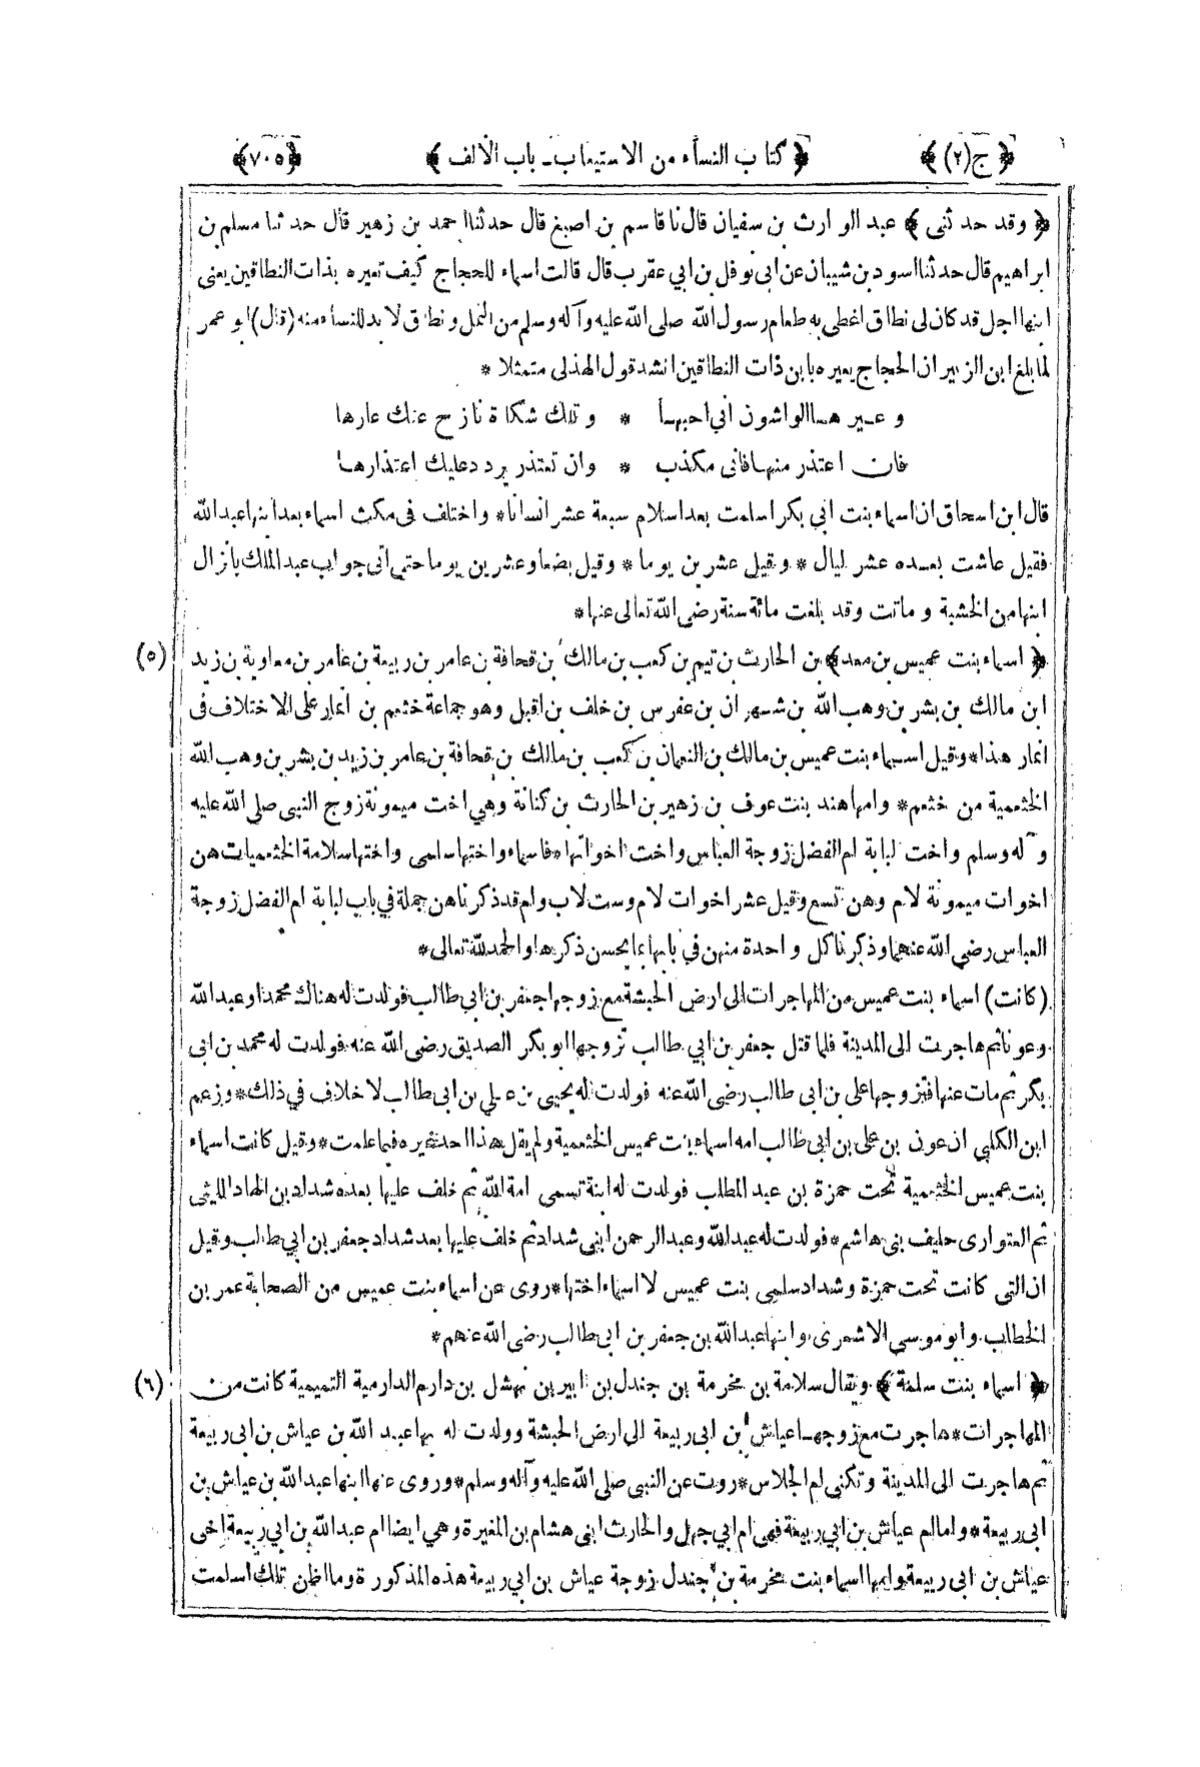 ﴿ج(٢)﴾ ﴿كتاب النسآء من الاستيعاب ـ باب الألف﴾ ﴿٧٠٥﴾
﴿وقد حدثنى﴾ عبد الوارث بن سفيان قال نا قاسم بن اصبغ قال حدثنا احمد بن زهير قال حدثنا مسلم بن
ابراهيم قال حدثنا اسود بن شيبان عن ابى نوفل بن ابي عقرب قال قالت اسماء للحجاج كيف تعيره بذات النطاقين يعنى
ابنها اجل قد كان لى نطاق اغطى به طعام رسول الله صلى الله عليه وآله وسلم من النمل و نطاق لا بد للنسآء منه (قال) ابو عمر
لما بلغ ابن الزبير ان الحجاج يعيره بابن ذات النطاقين انشد قول الهذلى متمثلا *
و عـير هـا الواشون انى احبهـا * و تلك شكاة نازح عنك عارها
فان اعتذر منهـا فانى مكذب * وان تعتذر يردد عليك اعتذارها
قال ابن اسحاق ان اسماء بنت ابي بكر اسلمت بعد اسلام سبعة عشر انسانا * واختلف فى مكث اسماء بعد ابنها عبد الله
فقيل عاشت بعـده عشر ليال * وقيل عشرين يوما * وقيل بضعا وعشرين يوما حتى اتى جواب عبد الملك بانزال
ابنها من الخشبة و ماتت وقد بلغت مائة سنة رضى الله تعالى عنها *
(٥) ﴿اسماء بنت عميس بن معد﴾ بن الحارث بن تيم بن كعب بن مالك بن قحافة بن عامر بن ربيعة بن عامر بن معاوية بن زيد
ابن مالك بن بشر بن وهب الله بن شهران بن عفرس بن خلف بن اقبل وهو جماعة خثعم بن انمار على الاختلاف فى
انمار هذا * وقيل اسماء بنت عميس بن مالك بن النعمان بن كعب بن مالك بن قحافة بن عامر بن زيد بن بشر بن وهب الله
الخثعمية من خثعم * وامها هند بنت عوف بن زهير بن الحارث بن كنانة وهي اخت ميمونة زوج النبى صلى الله عليه
وآله وسلم واخت لبابة ام الفضل زوجة العباس واخت اخواتها * فاسماء واختها سلمى واختها سلامة الخثعميات هن
اخوات ميمونة لام وهن تسع وقيل عشر اخوات لام وست لاب وام قد ذكرناهن جملة في باب لبابة ام الفضل زوجة
العباس رضي الله عنهما وذكرنا كل واحدة منهن في بابها بما يحسن ذكرها والحمد لله تعالى *
(كانت) اسماء بنت عميس من المهاجرات الى ارض الحبشة مع زوجها جعفر بن ابي طالب فولدت له هناك محمدا وعبد الله
وعونا ثم هاجرت الى المدينة فلما قتل جعفر بن ابي طالب تزوجها ابو بكر الصديق رضى الله عنه فولدت له محمد بن ابى
بكر ثم مات عنها فتزوجها على بن ابى طالب رضى الله عنه فولدت له يحيى بن علي بن ابى طالب لا خلاف في ذلك * وزعم
ابن الكلبي ان عون بن على بن ابى طالب امه اسماء بنت عميس الخثعمية ولم يقل هذا احد غيره فيما علمت * وقيل كانت اسماء
بنت عميس الخثعمية تحت حمزة بن عبد المطلب فولدت له ابنة تسمى امة الله ثم خلف عليها بعده شداد بن الهاد الليثى
ثم العتوارى حليف بنى هاشم * فولدت له عبد الله وعبد الرحمن ابنى شداد ثم خلف عليها بعد شداد جعفر بن ابي طالب وقيل
ان التى كانت تحت حمزة وشداد سلمى بنت عميس لا اسماء اختها * روى عن اسماء بنت عميس من الصحابة عمر بن
الخطاب وابو موسى الاشعرى وابنها عبد الله بن جعفر بن ابى طالب رضى الله عنهم *
(٦) ﴿اسماء بنت سلمة﴾ ويقال سلامة بن مخرمة بن جندل بن ابير بن نهشل بن دارم الدارمية التميمية كانت من
المهاجرات * هاجرت مع زوجهـا عياش بن ابى ربيعة الى ارض الحبشة وولدت له بها عبد الله بن عياش بن ابى ربيعة
ثم هاجرت الى المدينة وتكنى ام الجلاس * روت عن النبى صلى الله عليه وآله وسلم * وروى عنها ابنها عبد الله بن عياش بن
ابى ربيعة * واما ام عياش بن ابى ربيعة فهى ام ابي جهل والحارث ابنى هشام بن المغيرة وهي ايضا ام عبد الله بن ابي ربيعة اخى
عياش بن ابى ربيعة وايها اسماء بنت مخرمة بن جندل زوجة عياش بن ابي ربيعة هذه المذكورة وما اظن تلك اسلمت